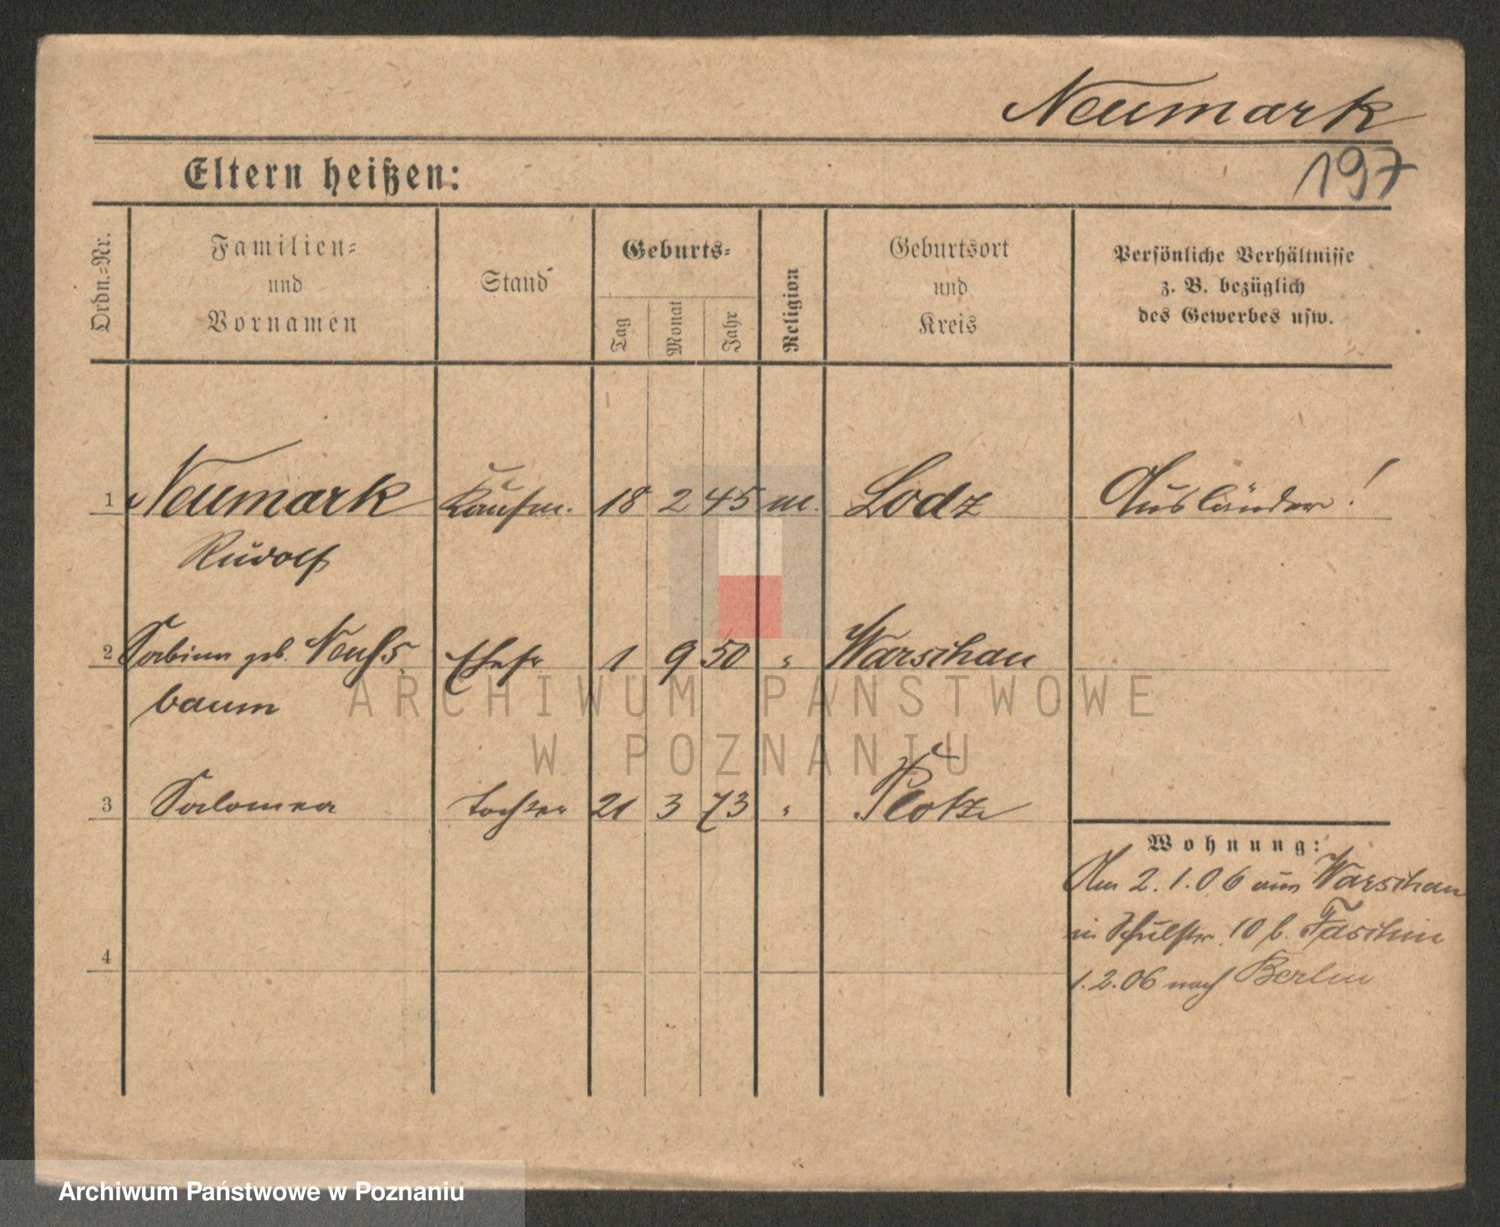 Neumark
197
Eltern heißen:
Ordn.-Nr.
Familien-
und
Vornamen
Stand
Geburts-
Tag
Monat
Jahr
Religion
Geburtsort
und
Kreis
Persönliche Verhältnisse
z. B. bezüglich
des Gewerbes usw.
1 Neumark Kaufm. 18 2 45 m. Lodz Ausländer!
Rudolf
2 Sabina geb. Ehefr 1 9 50 " Warschau
baum
3 Salomea Tochter 21 3 73 " Plotzk
Wohnung:
Am 2.1.06 aus Warschau
in Schulstr. 10 b.
4
1.2.06 nach Berlin
ARCHIWUM PAŃSTWOWE
W POZNANIU
Archiwum Państwowe w Poznaniu